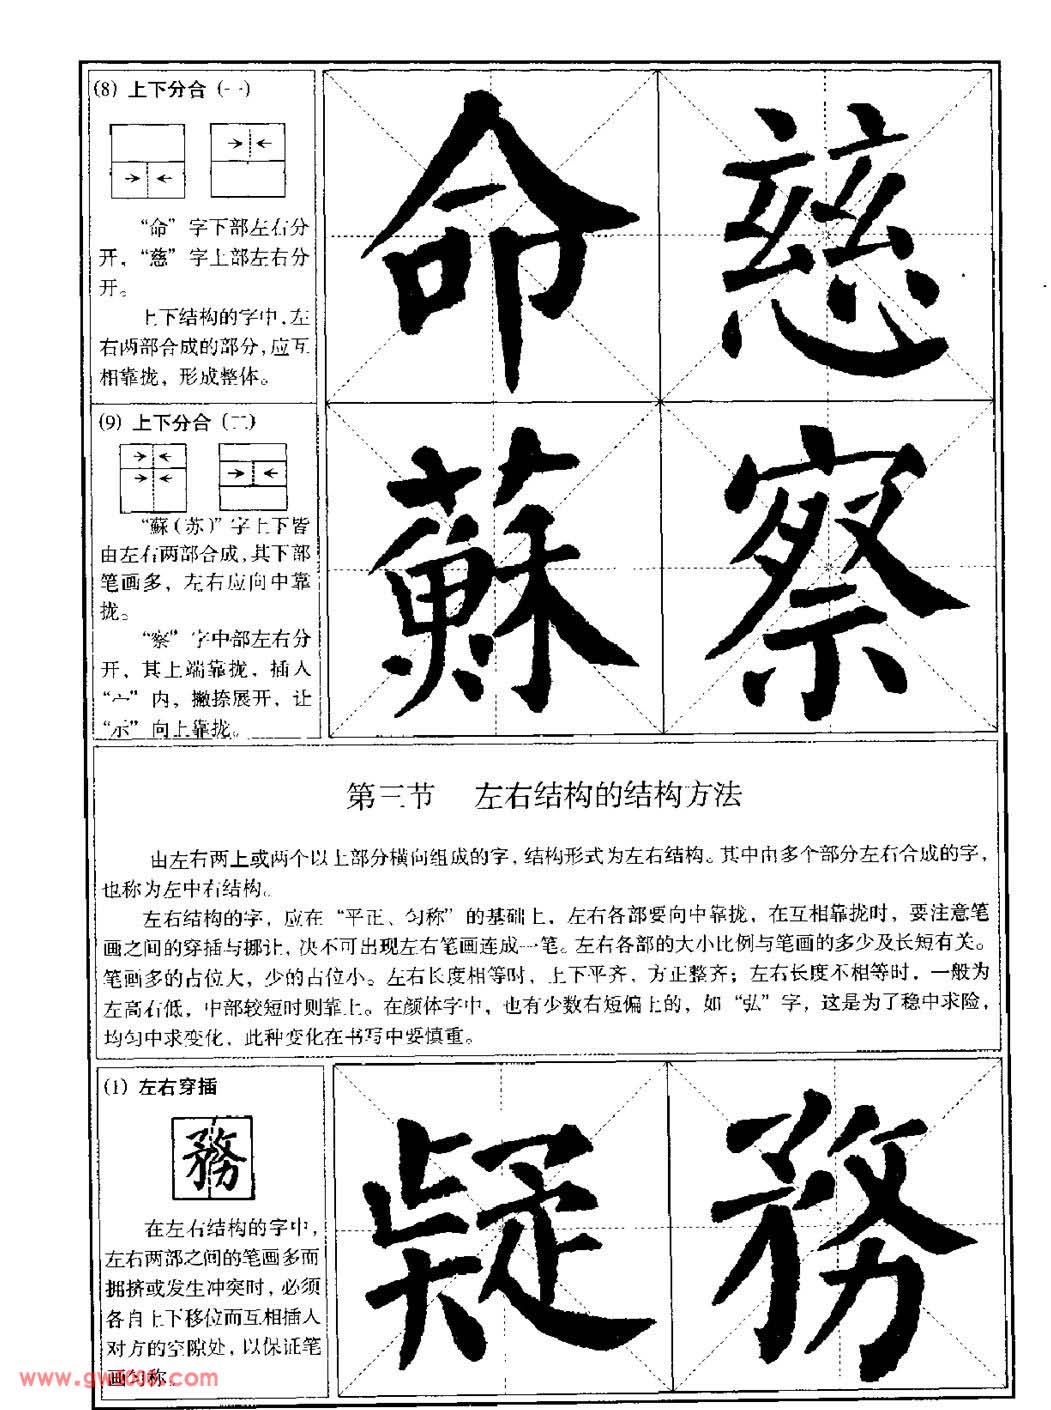 (8) 上下分合（一）
“命”字下部左右分
开，“慈”字上部左右分
开。
上下结构的字中，左
右两部合成的部分，应互
相靠拢，形成整体。
命 慈
(9) 上下分合（二）
“蘇（苏）”字上下皆
由左右两部合成，其下部
笔画多，左右应向中靠
拢。
“察”字中部左右分
开，其上端靠拢，插入
“宀”内，撇捺展开，让
“示”向上靠拢。
蘇 察
第三节 左右结构的结构方法
由左右两上或两个以上部分横向组成的字，结构形式为左右结构。其中由多个部分左右合成的字，
也称为左中右结构。
左右结构的字，应在“平正、匀称”的基础上，左右各部要向中靠拢，在互相靠拢时，要注意笔
画之间的穿插与挪让，决不可出现左右笔画连成一笔。左右各部的大小比例与笔画的多少及长短有关。
笔画多的占位大，少的占位小。左右长度相等时，上下平齐，方正整齐；左右长度不相等时，一般为
左高右低，中部较短时则靠上。在颜体字中，也有少数右短偏上的，如“弘”字，这是为了稳中求险，
均匀中求变化，此种变化在书写中要慎重。
(1) 左右穿插
務
在左右结构的字中，
左右两部之间的笔画多而
拥挤或发生冲突时，必须
各自上下移位而互相插入
对方的空隙处，以保证笔
画匀称。
疑 務